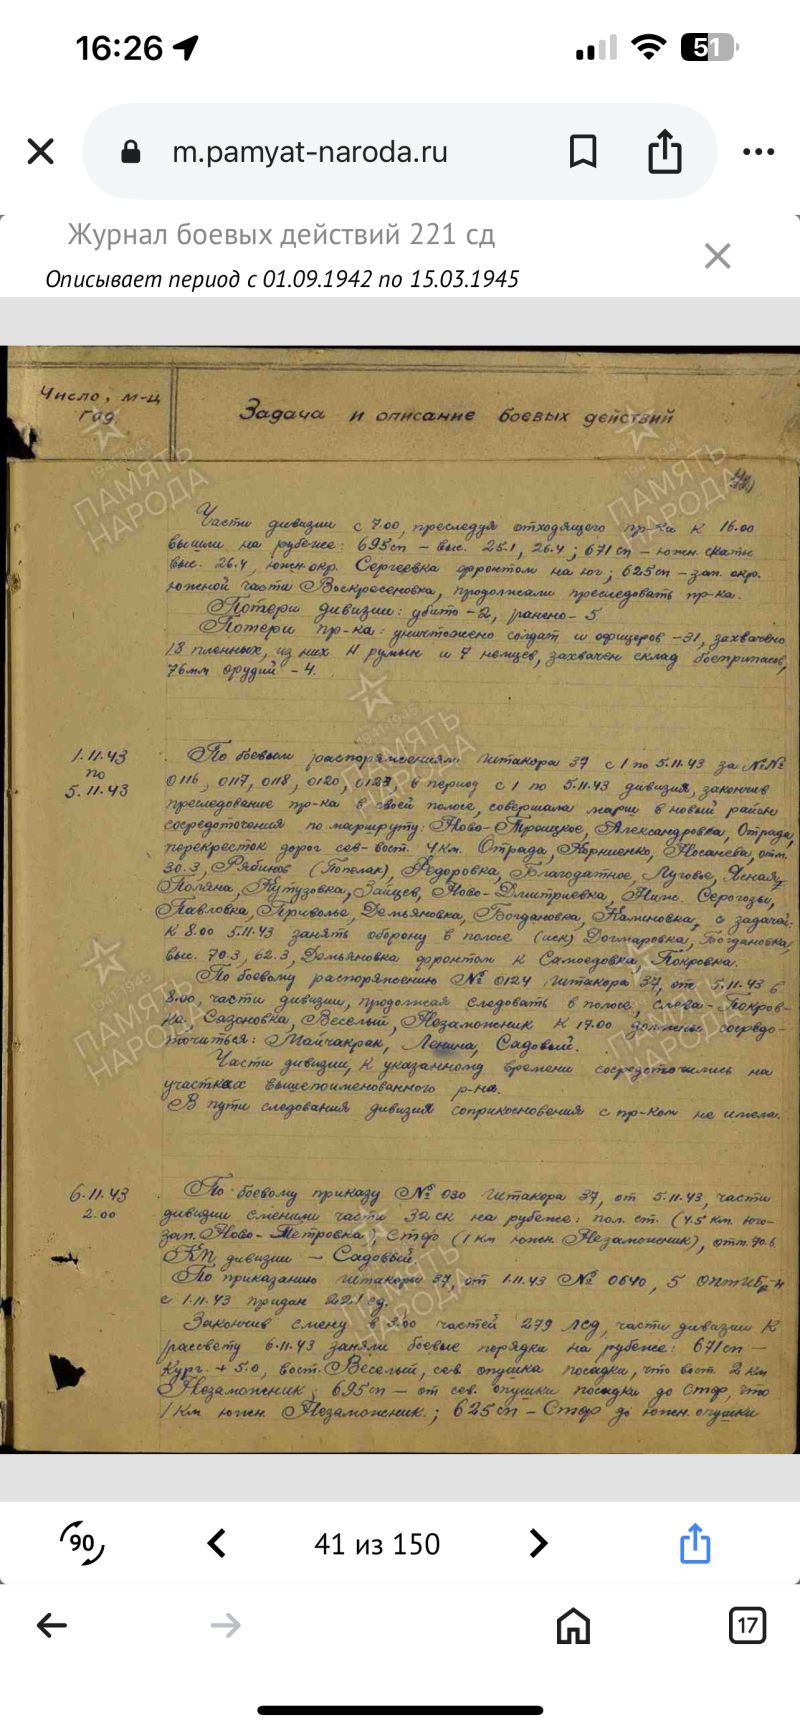 16:26
51
m.pamyat-naroda.ru
Журнал боевых действий 221 сд
Описывает период с 01.09.1942 по 15.03.1945
Число, м-ц
год
Задача и описание боевых действий
Части дивизии с 7.00, преследуя отходящего пр-ка к 16.00
вышли на рубеже: 695сп – выс. 25.1, 26.4; 671 сп – южн. скаты
выс. 26.4, южн. окр. Сергеевка фронтом на юг; 625сп – зап. окр.
южной части Воскресеновка, продолжали преследовать пр-ка.
Потери дивизии: убито – 2, ранено – 5
Потери пр-ка: уничтожено солдат и офицеров – 31, захвачено
18 пленных, из них 11 румын и 7 немцев, захвачен склад боеприпасов,
76мм орудий – 4.
1.11.43
по
5.11.43
По боевым распоряжениям штакора 37 с 1 по 5.11.43 за №№
0116, 0117, 0118, 0120, 0123, в период с 1 по 5.11.43 дивизия, закончив
преследование пр-ка в своей полосе, совершала марш в новый район
сосредоточения по маршруту: Ново-Троицкое, Александровка, Отрада,
перекресток дорог сев-вост. 4км. Отрада, Корниенко, Носачева, отм.
30.3, Рябинов (Попелак), Федоровка, Благодатное, Луговое, Ясная
Поляна, Кутузовка, Зайцев, Ново-Дмитриевка, Ниж. Серогозы,
Павловка, Приволье, Демьяновка, Богдановка, Калиновка, с задачей:
к 8.00 5.11.43 занять оборону в полосе (иск) Догмаровка, Богдановка,
выс. 70.3, 62.3, Демьяновка фронтом к Самоедовка, Покровка.
По боевому распоряжению № 0124 штакора 37, от 5.11.43 в
8.00, части дивизии, продолжая следовать в полосе, слева – Покров-
ка, Сазоновка, Веселый, Незаможник к 17.00 должны сосредо-
точиться: Майчакрак, Ленина, Садовый.
Части дивизии, к указанному времени сосредоточились на
участках вышепоименованного р-на.
В пути следования дивизия соприкосновения с пр-ком не имела.
6.11.43
2.00
По боевому приказу № 030 штакора 37, от 5.11.43, части
дивизии сменили части 32 ск на рубеже: пол. ст. (4.5 км. юго-
зап. Ново-Петровка), стф (1 км южн. Незаможник), отм. 70.6.
КП дивизии – Садовый.
По приказанию штакора 37, от 1.11.43 № 0640, 5
с 1.11.43 придан 221 сд.
Закончив смену в 3.00 частей 279 лсд, части дивизии к
рассвету 6.11.43 заняли боевые порядки на рубеже: 671сп –
Кург. + 5.0, вост. Веселый, сев. опушка посадки, что вост. 2 км
Незаможник; 695сп – от сев. опушки посадки до стф, что
1 км южн. Незаможник.; 625сп – стф до южн. опушки
90
41 из 150
17